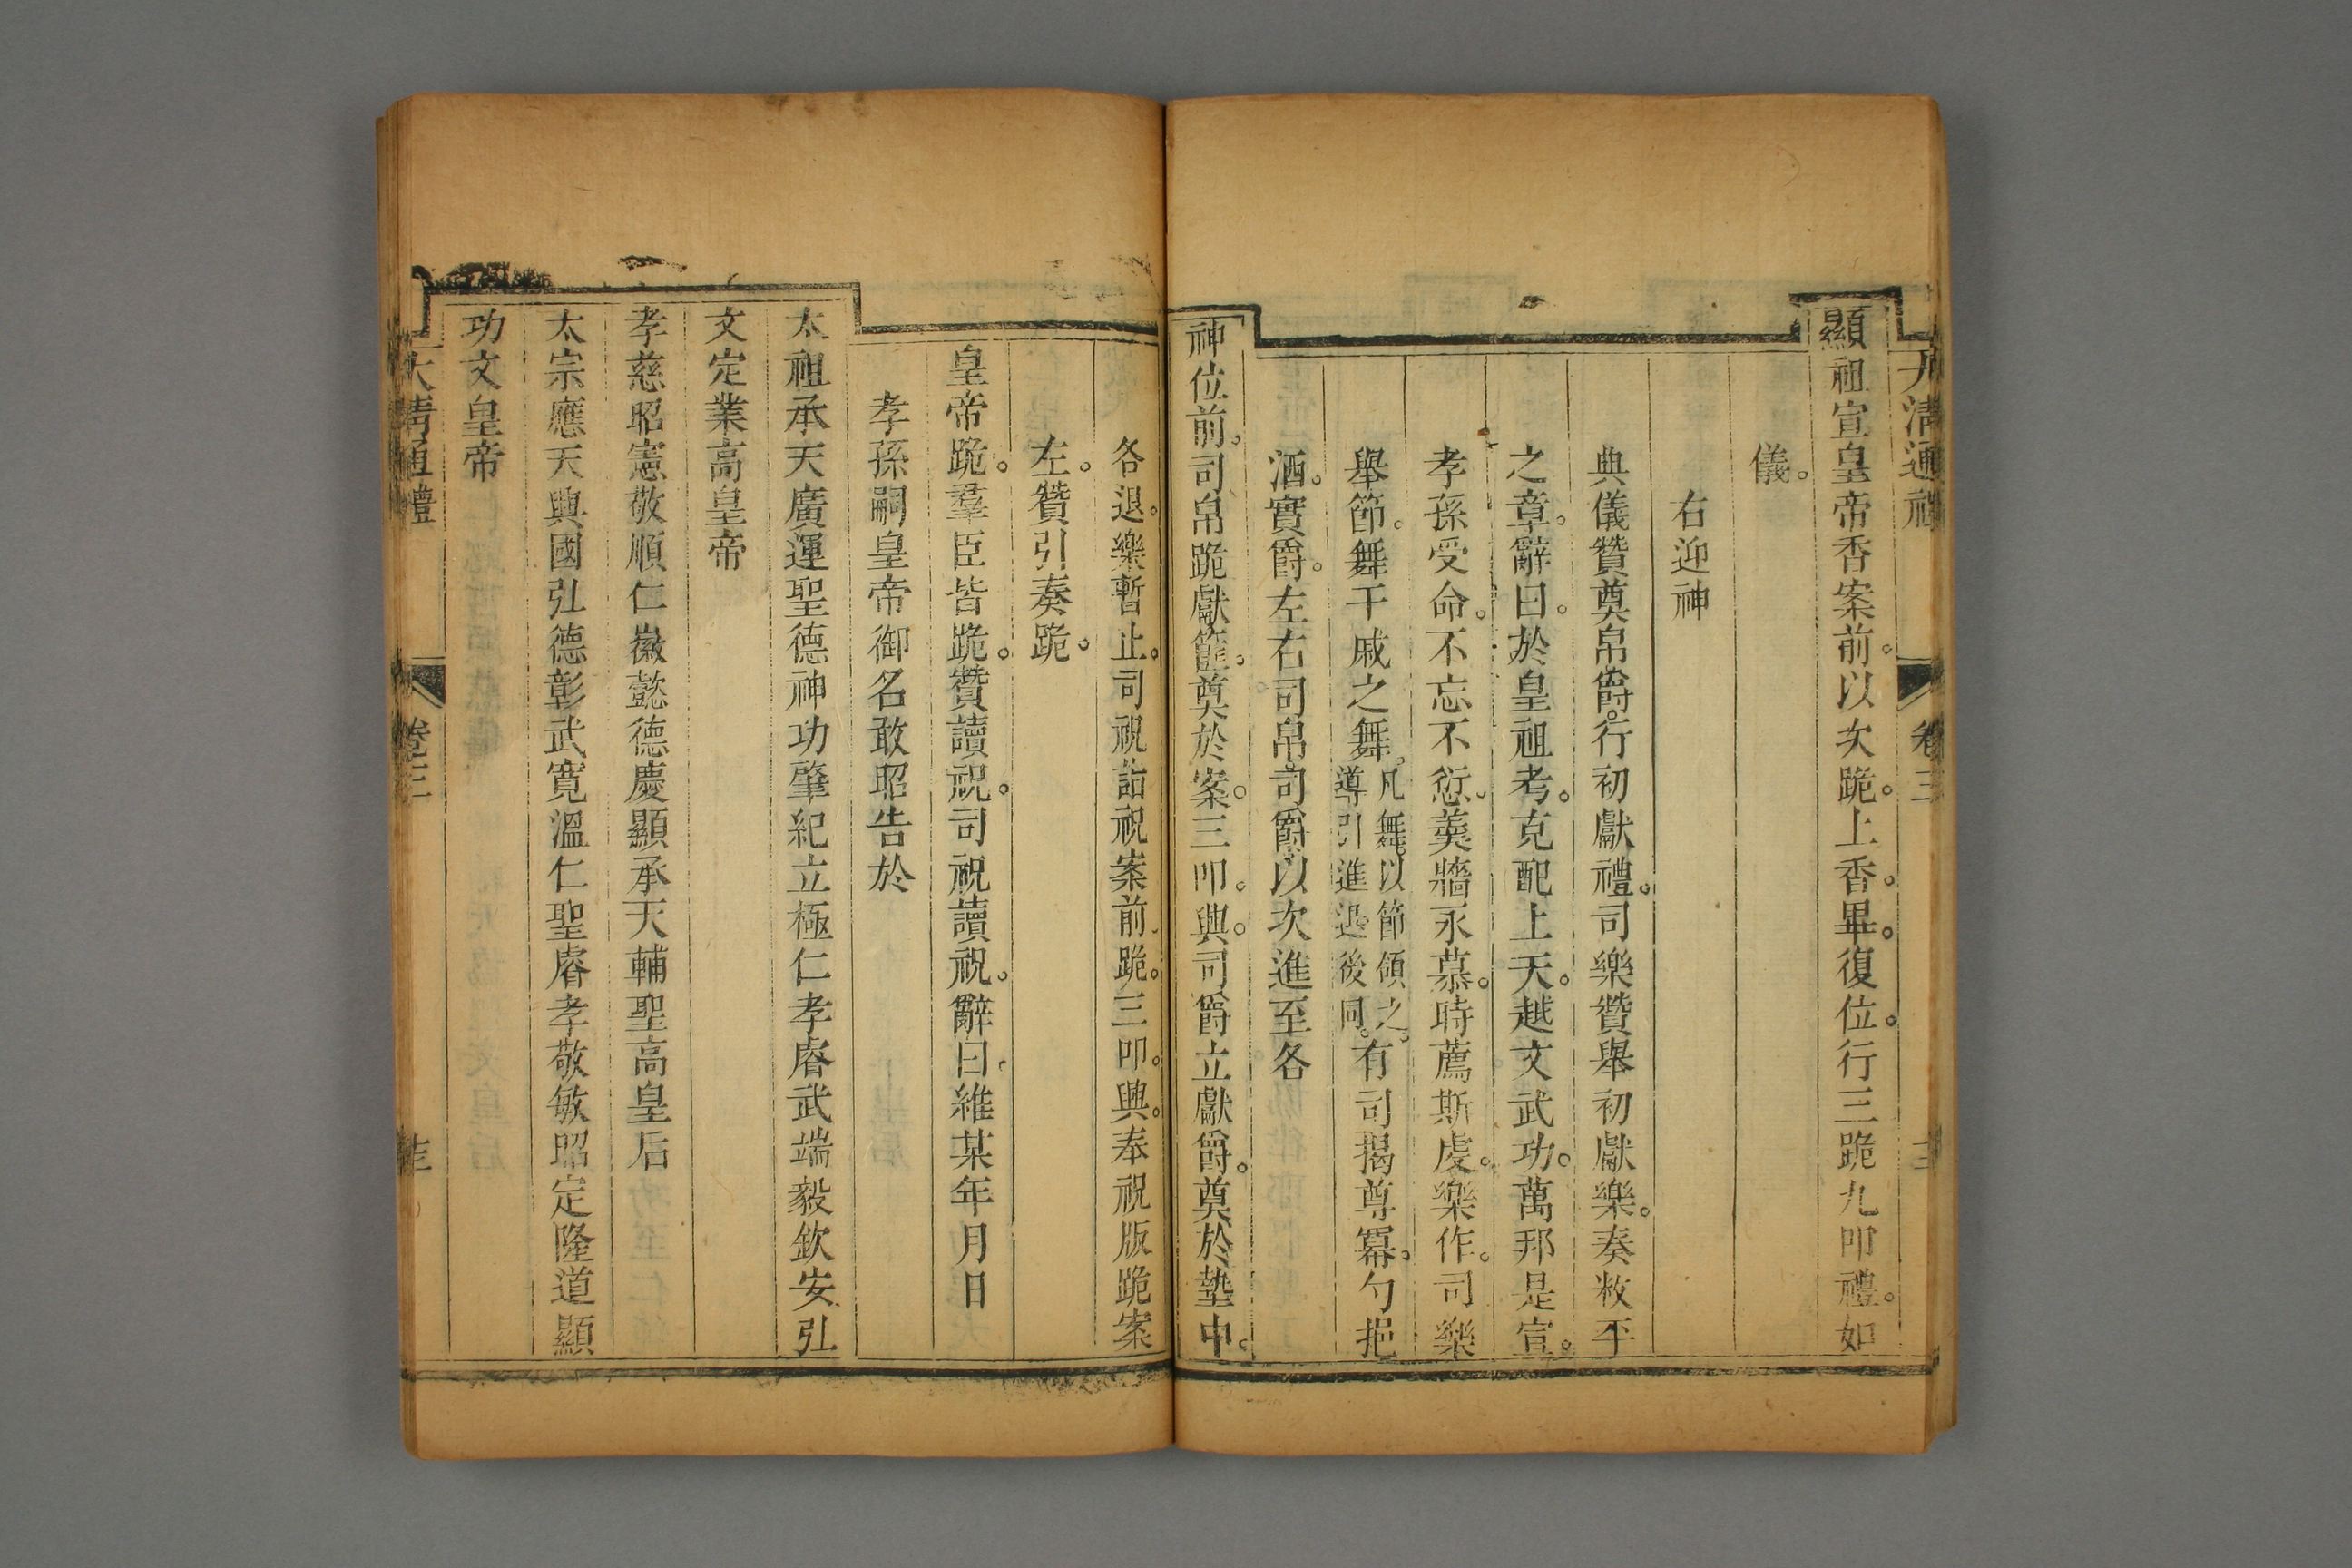 大清通禮 卷三
顯祖宣皇帝香案前。以次跪。上香。畢。復位。行三跪九叩禮。如
儀。
右迎神
典儀贊奠帛爵。行初獻禮。司樂贊舉初獻樂。奏敉平
之章。辭曰。於皇祖考。克配上天。越文武功。萬邦是宣。
孝孫受命。不忘不愆。羹牆永慕。時薦斯虔。樂作。司樂
舉節。舞干戚之舞。凡舞。以節領之。導引進退。後同。有司揭尊冪。勺挹
酒。實爵。左右司帛。司爵。以次進至各
神位前。司帛跪獻篚。奠於案。三叩。興。司爵立獻爵。奠於墊中。
各退。樂暫止。司祝詣祝案前。跪。三叩。興。奉祝版跪案
左。贊引奏跪。
皇帝跪。羣臣皆跪。贊讀祝。司祝讀祝。辭曰。維某年月日
孝孫嗣皇帝御名敢昭告於
太祖承天廣運聖德神功肇紀立極仁孝睿武端毅欽安弘
文定業高皇帝
孝慈昭憲敬順仁徽懿德慶顯承天輔聖高皇后
太宗應天興國弘德彰武寬溫仁聖睿孝敬敏昭定隆道顯
功文皇帝
大清通禮 卷三